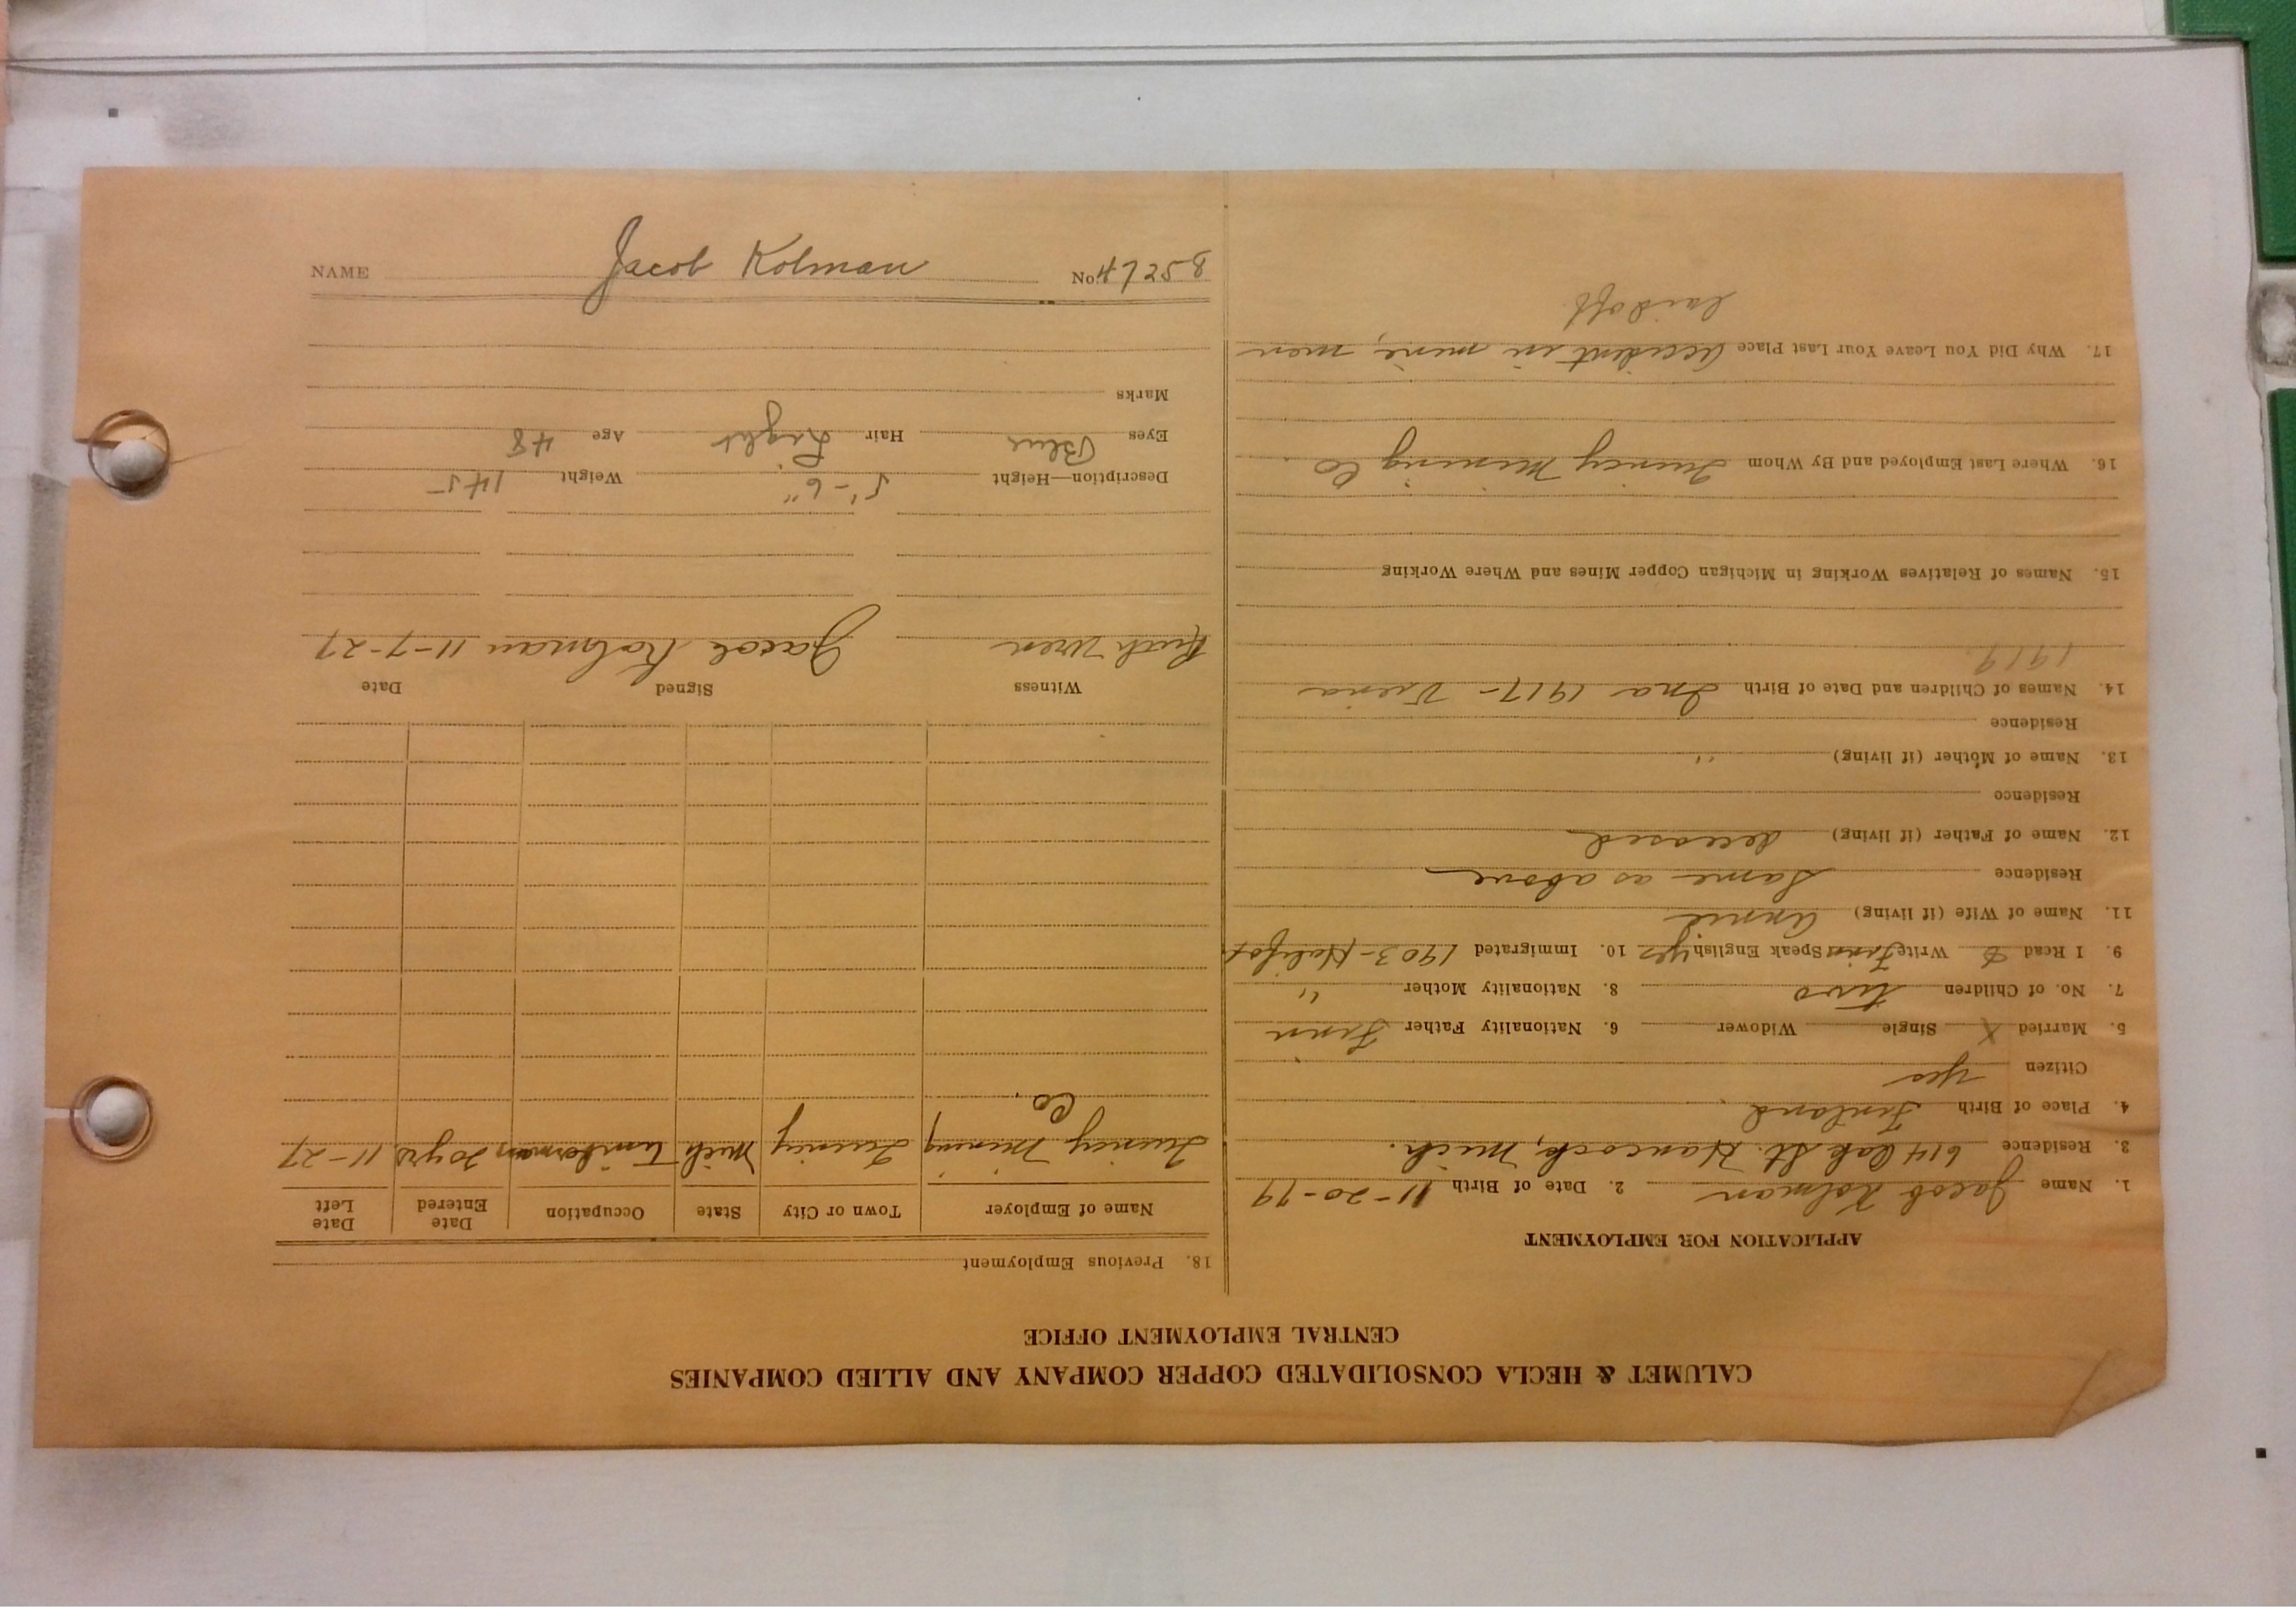 CALUMET & HECLA CONSOLIDATED COPPER COMPANY AND ALLIED COMPANIES
CENTRAL EMPLOYMENT OFFICE
APPLICATION FOR EMPLOYMENT
1. Name Jacob Kolman 2. Date of Birth 11-20-79
3. Residence 614 Oak St. Hancock, Mich.
4. Place of Birth Finland
Citizen yes
5. Married X Single Widower 6. Nationality Father Finn
7. No. of Children two 8. Nationality Mother "
9. I Read & Write Finn Speak English yes 10. Immigrated 1903-Halifax
11. Name of Wife (if living) Annie
Residence Same as above
12. Name of Father (if living) deceased
Residence
13. Name of Mother (if living) "
Residence
14. Names of Children and Date of Birth Ina 1917-
1919.
15. Names of Relatives Working in Michigan Copper Mines and Where Working
16. Where Last Employed and By Whom Quincy Mining Co.
17. Why Did You Leave Your Last Place Accident in mine, men
laid off.
18. Previous Employment
Name of Employer Town or City State Occupation Date Entered Date Left
Quincy Mining Quincy Mich Timberman 20 yrs 11-27
Co.
Witness Signed Date
Ruth Uren Jacob Kolman 11-7-27
Description—Height 5'-6" Weight 145-
Eyes Blue Hair Light Age 48
Marks
NAME Jacob Kolman No. 47258